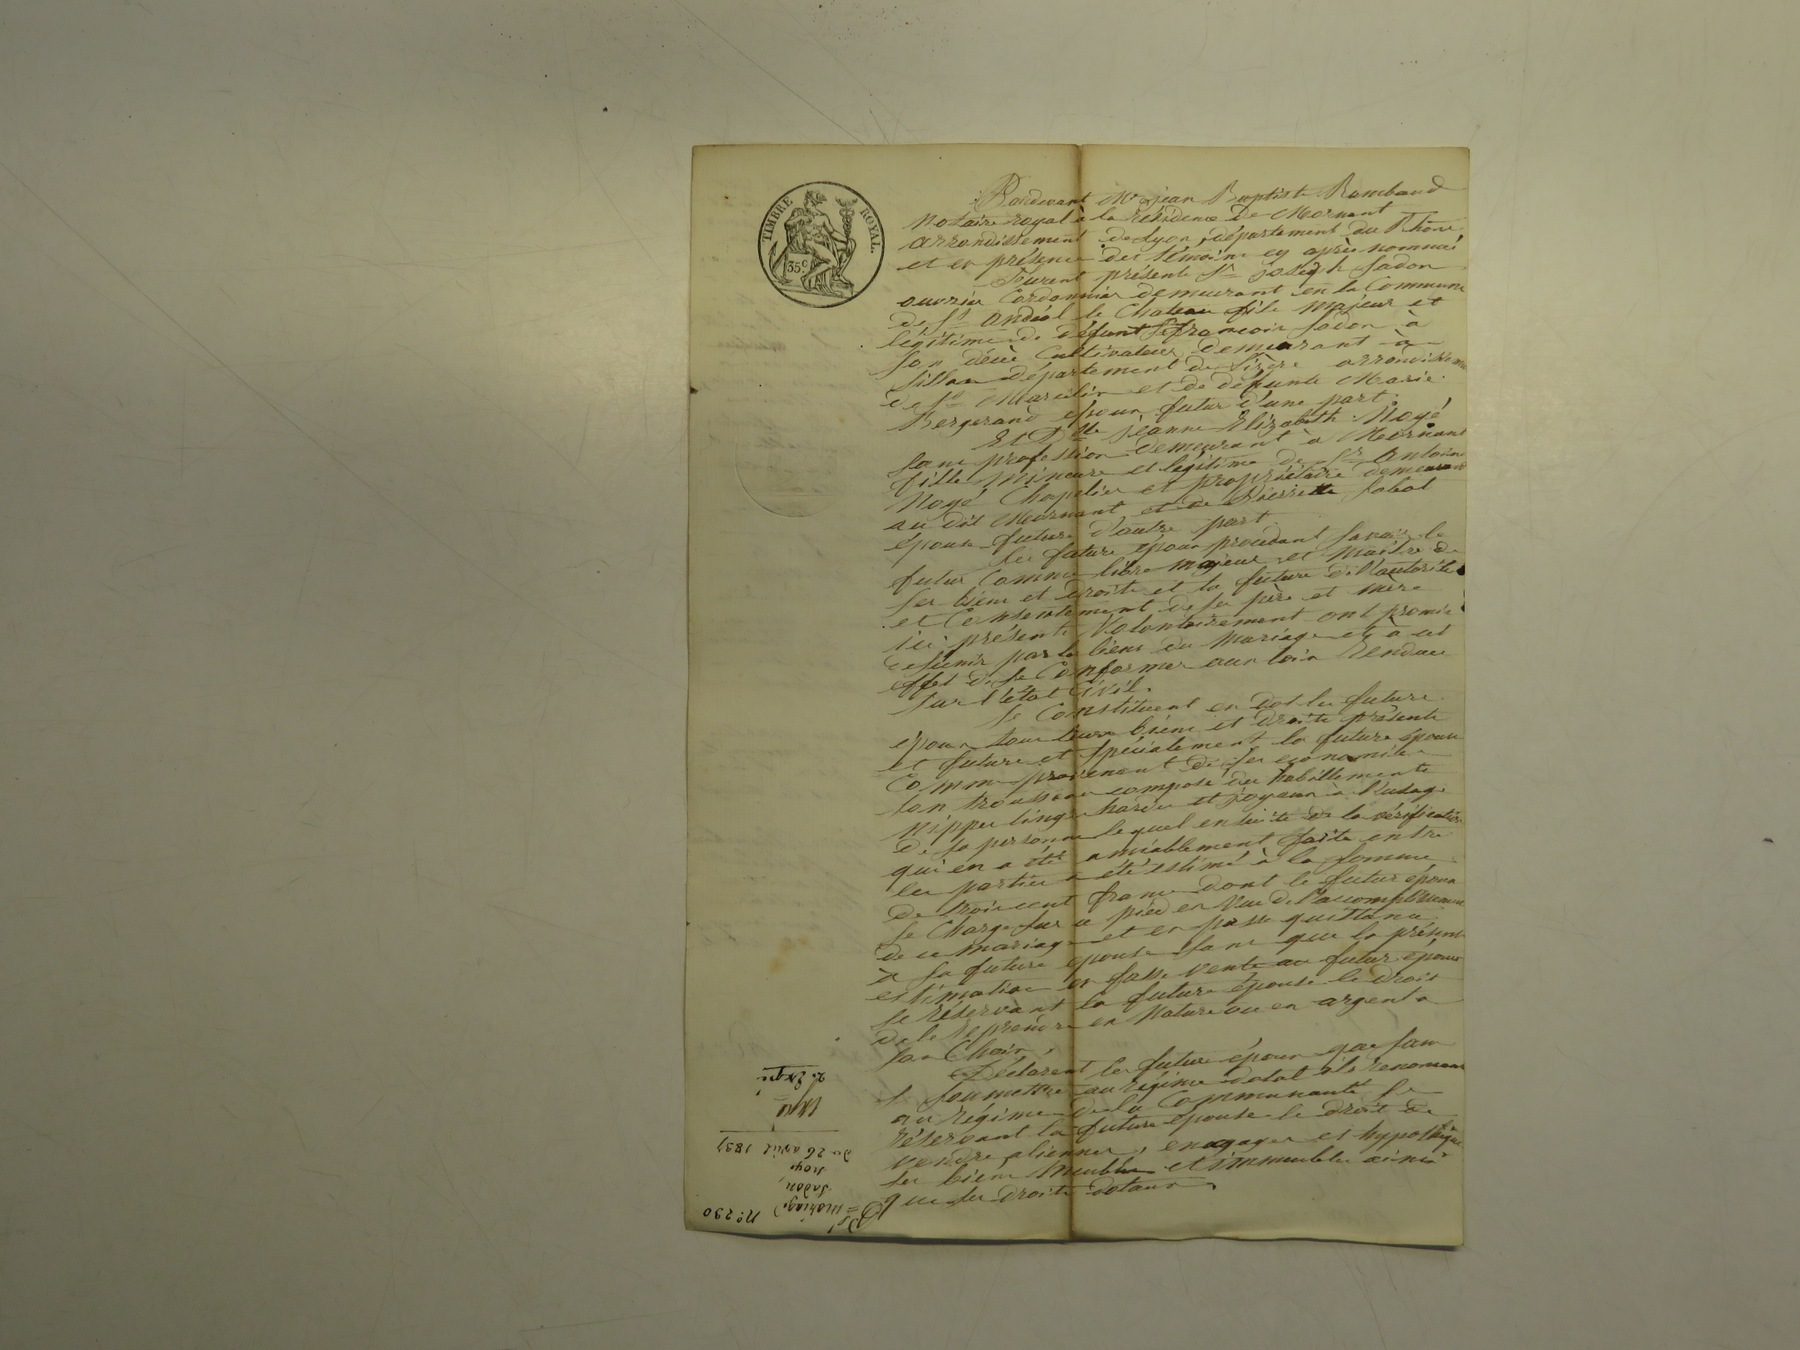 TIMBRE ROYAL.
35c
Pardevant Me jean Baptiste Rambaud
Notaire royal à la résidence de Mornant
arrondissement de Lyon, département du Rhône
et en présence des témoins cy après nommés
Furent présents Sr joseph Sadon
ouvrier Cordonnier demeurant en la Commune
de St andéol le Chateau fils majeur et
légitime de défunt françois Sadon à
son décès Cultivateur demeurant à
Sillan département de l'isère arrondissement
de St Marcelin et de défunte Marie
Bergerand époux futur d'une part.
Et Dlle jeanne Elizabeth Noyé
sans profession demeurant à Mornant
fille mineure et légitime de Sr antoine
Noyé Chapelier et propriétaire demeurant
au dit Mornant et de Pierrette Sabot
épouse future d'autre part
Les futurs époux procédant savoir le
futur Comme libre majeur et maitre de
ses biens et droits et la future de l'autorité
et Consentement de ses père et mère
ici présents Volontairement ont promis
de s'unir par les liens du mariage et à cet
effet de se Conformer aux lois rendues
sur l'état Civil.
Se Constituent en dot les futurs
époux tous leurs biens et droits présents
et futurs et spécialement la future épouse
Comme provenant de ses économies
son trousseau composé des habillements
nippes linges hardes et joyaux à l'usage
de sa personne lequel ensuite de la vérification
qui en a été amiablement faite entre
les parties a été estimé à la somme
de trois cent francs dont le futur époux
se Charge sur ce pied en Vue de l'accomplissement
de ce mariage et en passe quittance
à sa future épouse sans que la présente
estimation en fasse vente au futur époux
se réservant la future épouse le droit
de le reprendre en nature ou en argent à
son Choix,
Déclarent les futurs époux que sans
se soumettre au régime dotal ils renoncent
au régime de la Communauté se
réservant la future épouse le droit de
vendre aliéner, engager et hypothéquer
ses biens meubles et immeubles ainsi
que ses droits dotaux.
No. 230
mariage
Sadon,
Noyé
Du 26 avril 1837